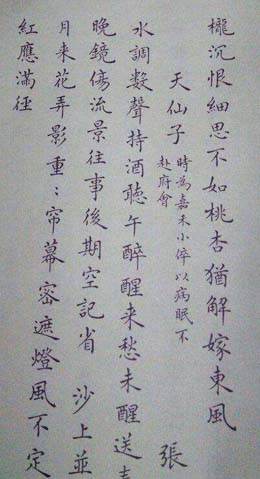 櫳沉恨細思不如桃杏猶解嫁東風
天仙子 時為嘉禾小倅以病眠不
赴府會 張
水調數聲持酒聽午醉醒来愁未醒送
晚鏡傷流景往事後期空記省 沙上並
月来花弄影重:帘幕密遮燈風不定
紅應滿徑